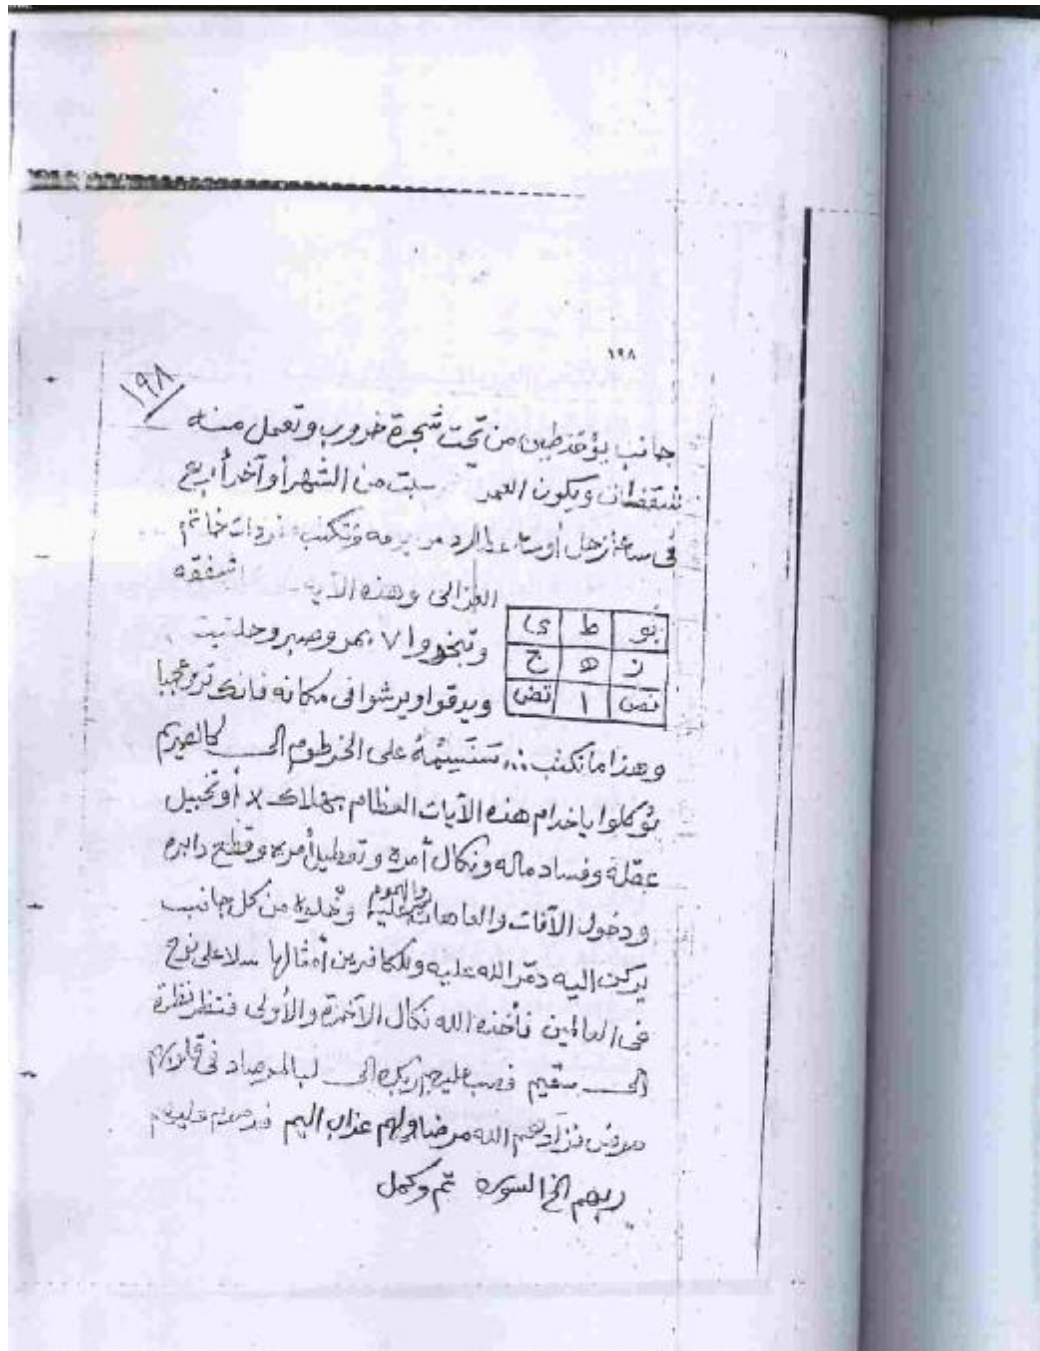 ١٩٨
١٩٨
جانب يؤخذ طين من تحت شجرة خروب وتعمل منه
شقفتان ويكون العمل سبت من الشهر أو آخر أربع
فى ساعة زحل أو ساعة وتكتب خاتم
الغزالى وهذه الآيه شقفه
بو ط ى
ز ه ح
نص ا نص
وتبخروا ٧ بمر وصبر وحلتيت
ويدقوا ويرشوا فى مكانه فانك ترى عجبا
وهذا ما تكتب ... سنسمه على الخرطوم الى كالصريم
توكلوا ياخدام هذه الآيات العظام بهلاك x أو تخبيل
عقله وفساد ماله ونكال أمره وتعطيل أمره وقطع دابره
ودخول الآفات والعاهات والهموم عليه من كل جانب
يركن اليه دمر الله عليه وللكافرين أمثالها سلا على نوح
فى العالمين فأخذه الله نكال الآخرة والأولى فنظر نظرة
الى سقيم فصب عليهم ربك الى لبالمرصاد فى قلوبهم
مرض فزادهم الله مرضا ولهم عذاب اليم فدمدم عليهم
ربهم الخ السوره تم وكمل